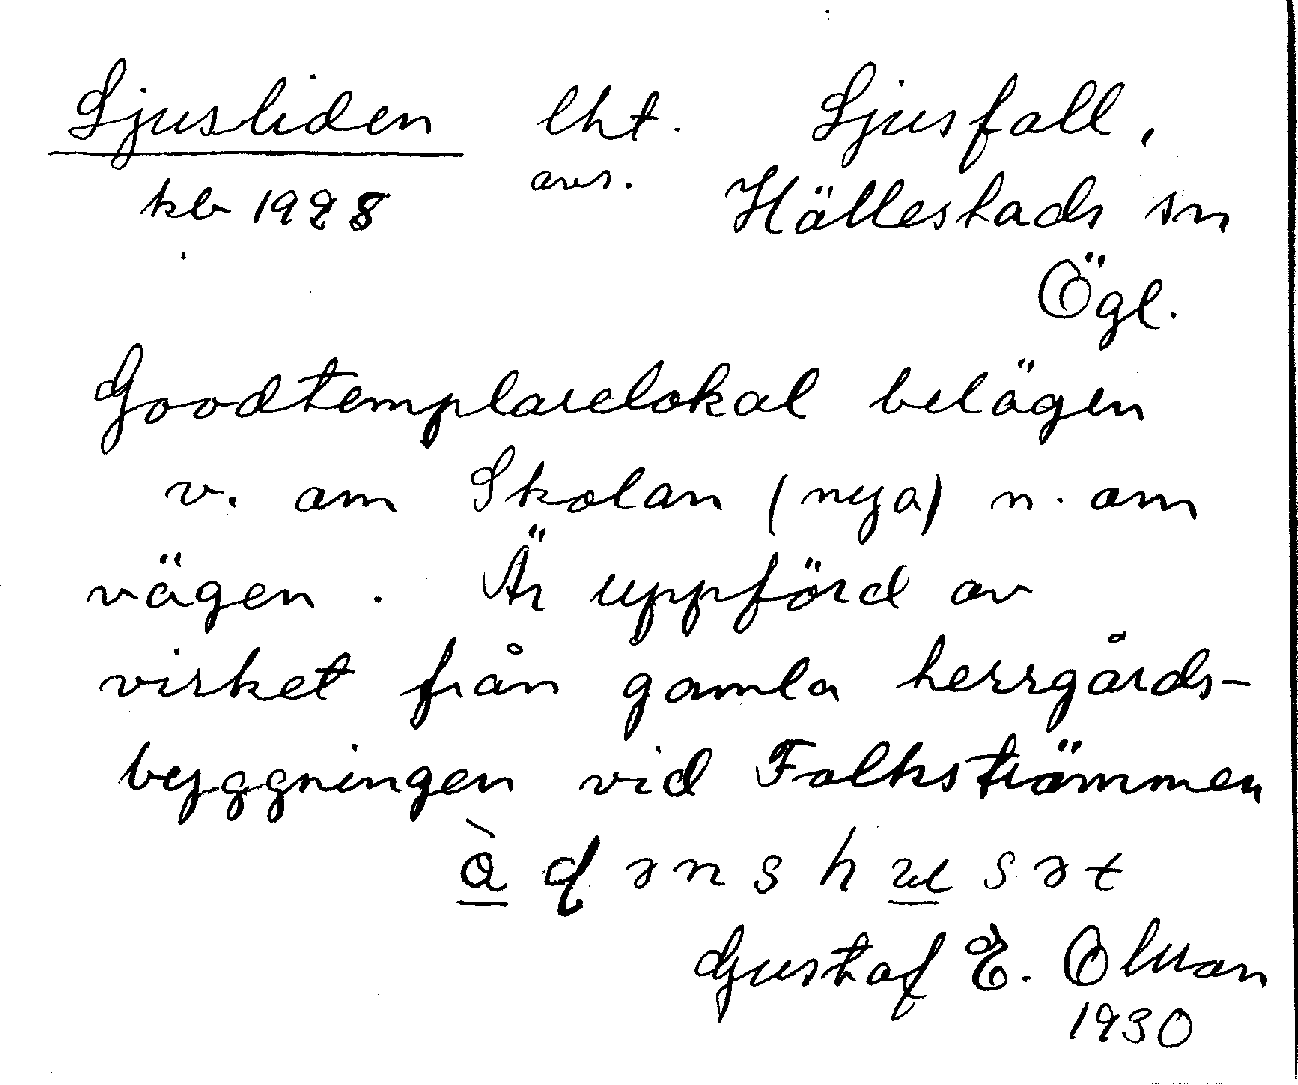 Ljusliden lht. Ljusfall,
kb 1928 avs. Hällestads sn
Ögl.
Goodtemplarelokal belägen
v. om Skolan (nya) n. om
vägen. Är uppförd av
virket från gamla herrgårds-
byggningen vid Folkströmmen
Gustaf E. Olsson
1930